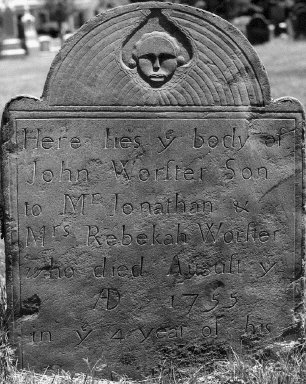 Here lies yͤ body of
John Worster Son
to Mʳ Jonathan &
Mʳˢ Rebekah Worster
who died August yͤ
AD 1755
in yͤ 4 year of his